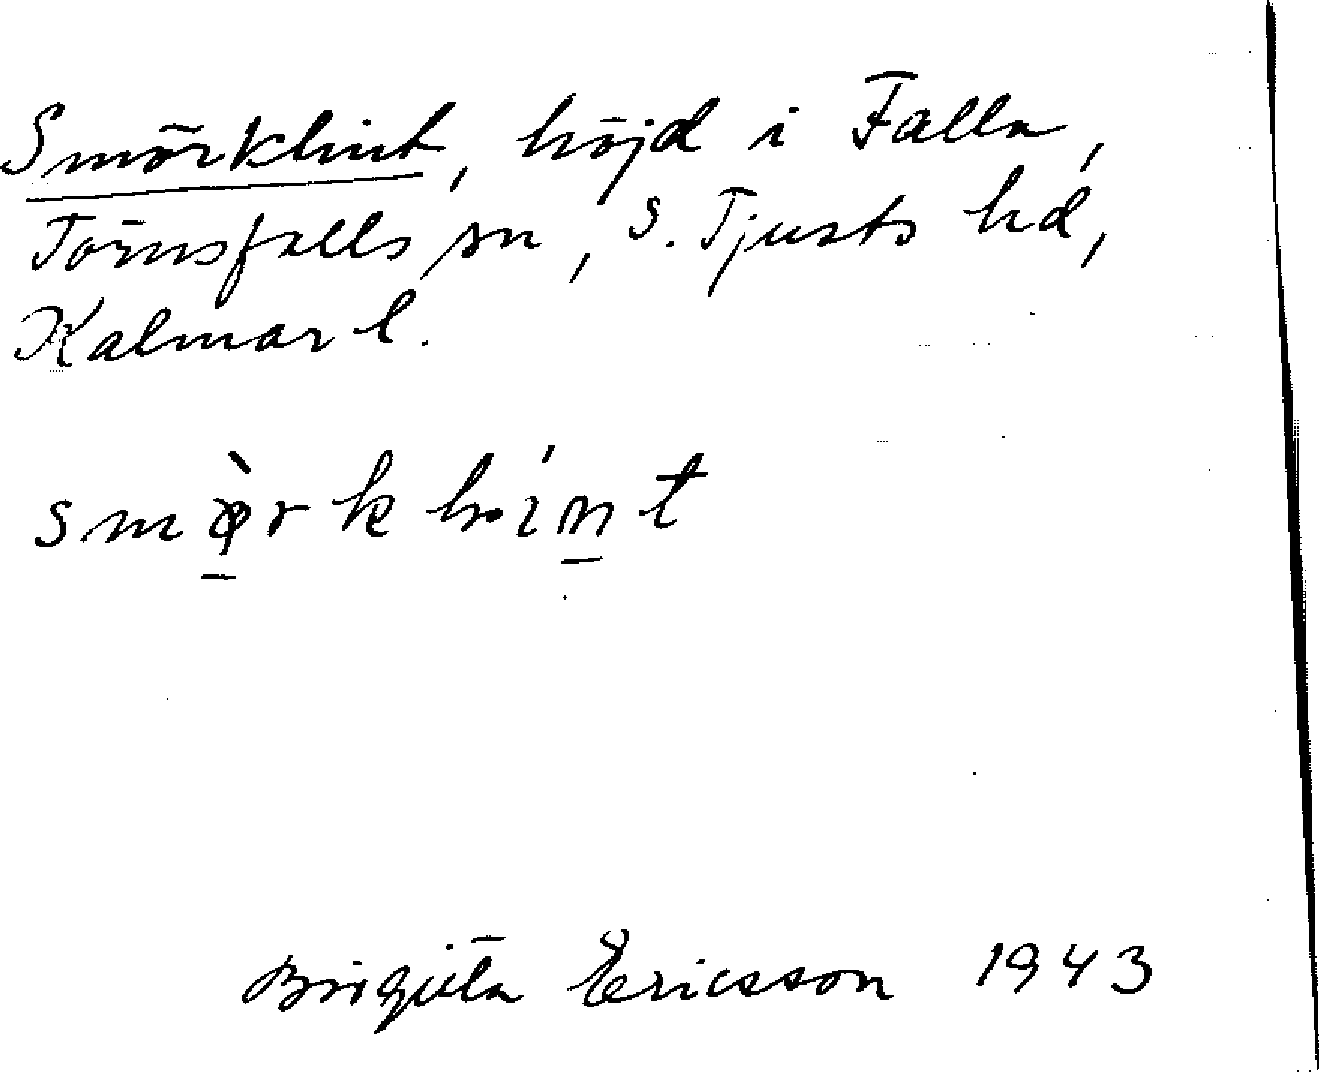 Smörklint, höjd i Falla,
Törnsfalls sn, S. Tjusts hd,
Kalmar l.
Birgitta Ericsson 1943